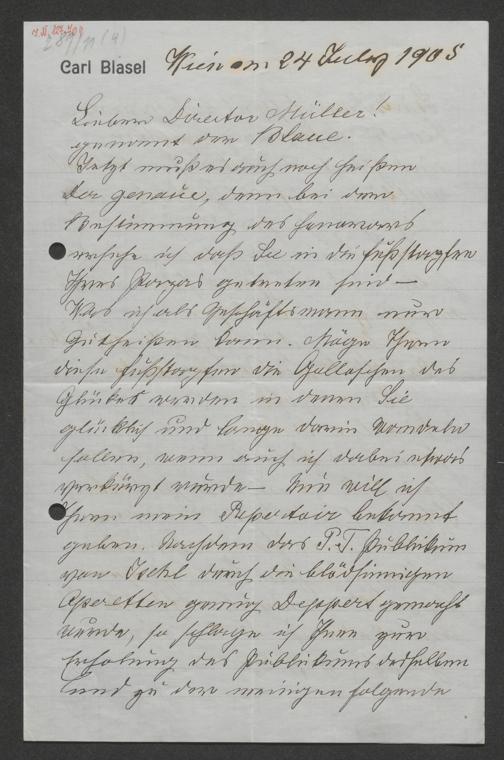 Carl Blasel
Wien am 24 July 1905
Lieber Director Müller!
genannt der Blaue.
Jetzt muß es auch noch heißen
der genaue, denn bei der
Bestimmung des Honorars
ersehe ich daß Sie in die Fußstapfen
Ihres Papas getreten sind —
Was ich als Geschäftsmann nur
Gutheißen kann. Möge Ihnen
diese Fußstapfen die Galloschen des
Glückes werden in denen Sie
glücklich und lange darin wandeln
sollen, wenn auch ich dabei etwas
verkürzt wurde — Nun will ich
Ihnen mein Repertoir bekannt
geben. Nachdem das P.T. Publikum
von Ischl durch die blödsinnigen
Operetten genug Deppert gemacht
wurde, so schlage ich Ihnen zur
Erholung des Publikums desselben
und zu der meinigen folgende